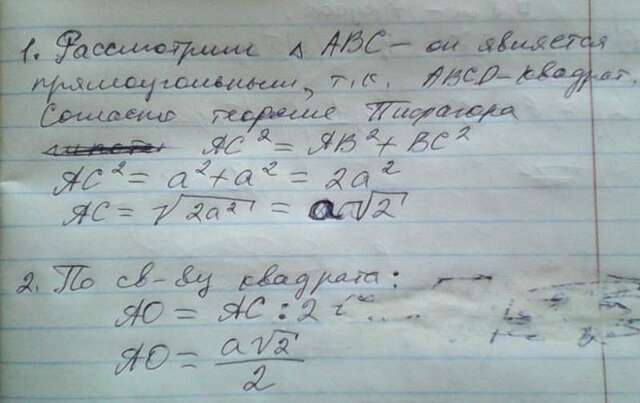 1. Рассмотрим △ ABC – он является
прямоугольным, т.к. ABCD – квадрат.
Согласно теореме Пифагора
AC² = AB² + BC²
AC² = a² + a² = 2a²
AC = √2a² = a√2
2. По св-ву квадрата:
AO = AC : 2
AO = a√2/2